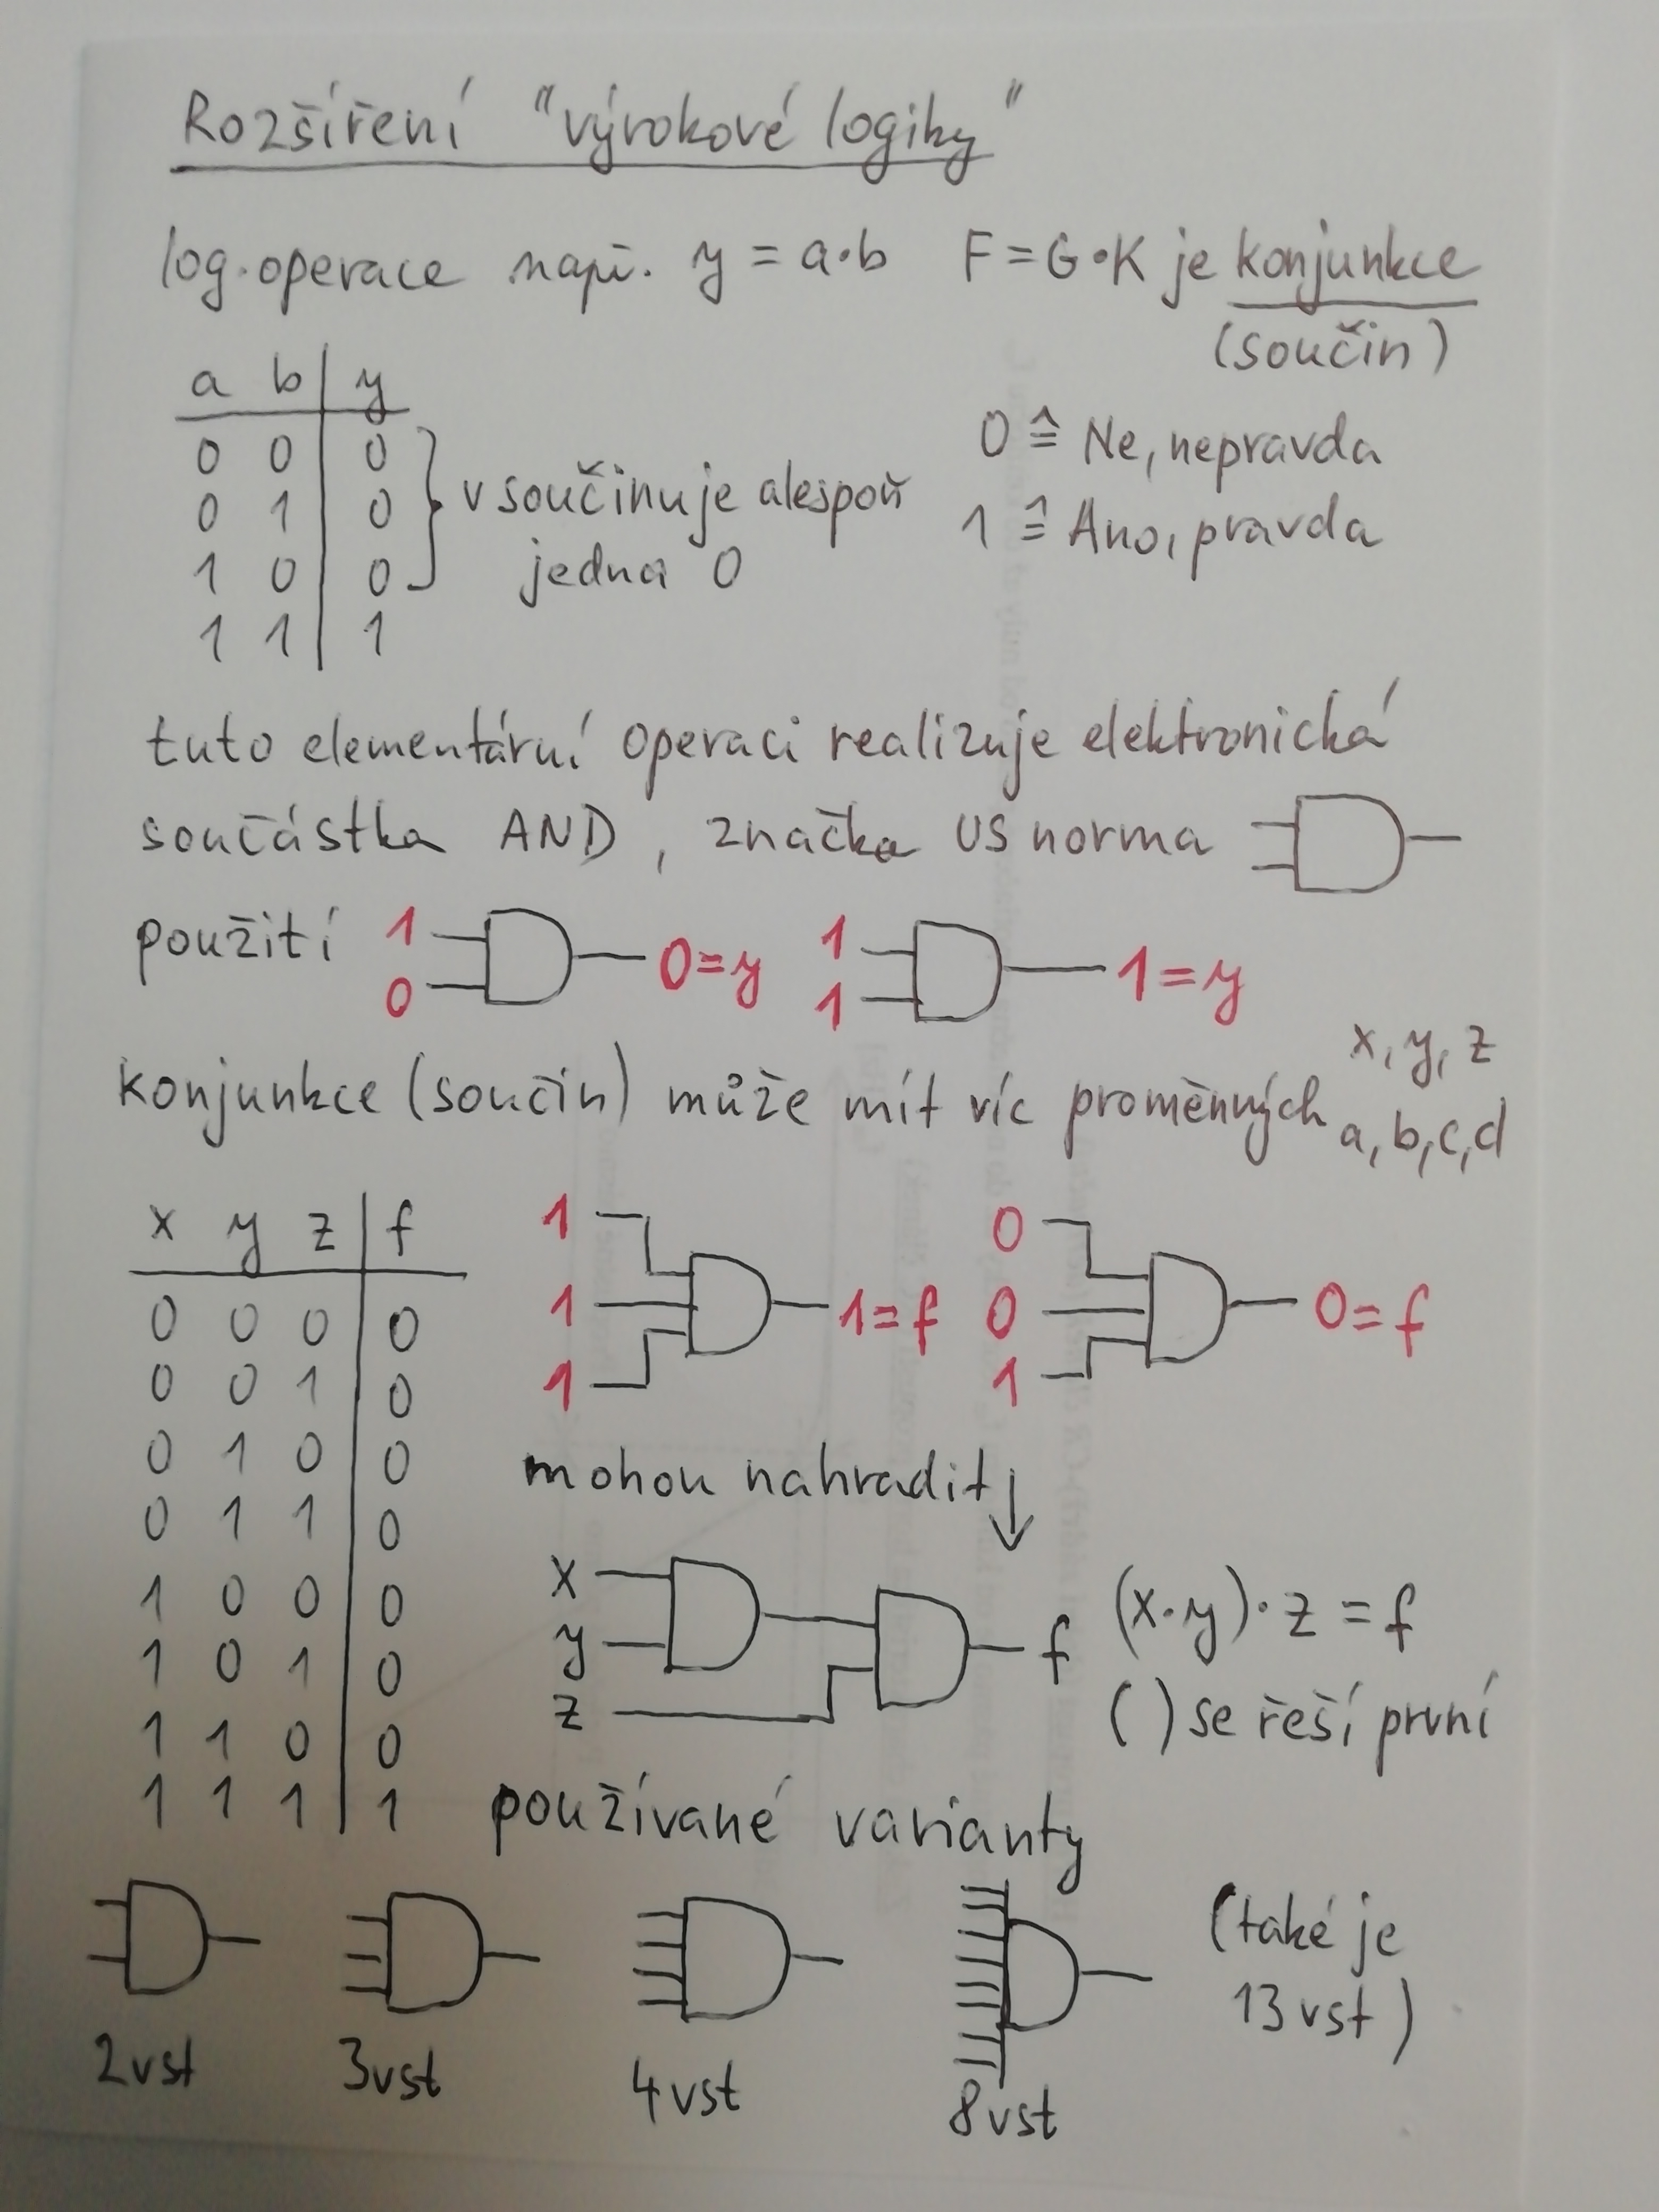 Rozšíření "výrokové logiky"
log. operace např. y = a·b F = G·K je konjunkce
(součin)
a b | y
0 0 | 0
0 1 | 0
1 0 | 0
1 1 | 1
v součinu je alespoň
jedna 0
0 ≙ Ne, nepravda
1 ≙ Ano, pravda
tuto elementární operaci realizuje elektronická
součástka AND, značka US norma
použití 1 0 0=y 1 1 1=y
konjunkce (součin) může mít víc proměnných x, y, z
a, b, c, d
x y z | f
0 0 0 | 0
0 0 1 | 0
0 1 0 | 0
0 1 1 | 0
1 0 0 | 0
1 0 1 | 0
1 1 0 | 0
1 1 1 | 1
1
1 1=f
1
0
0 0=f
1
mohou nahradit ↓
x
y
z
f (x·y)·z = f
( ) se řeší první
používané varianty
2vst 3vst 4vst 8vst
(také je
13 vst)